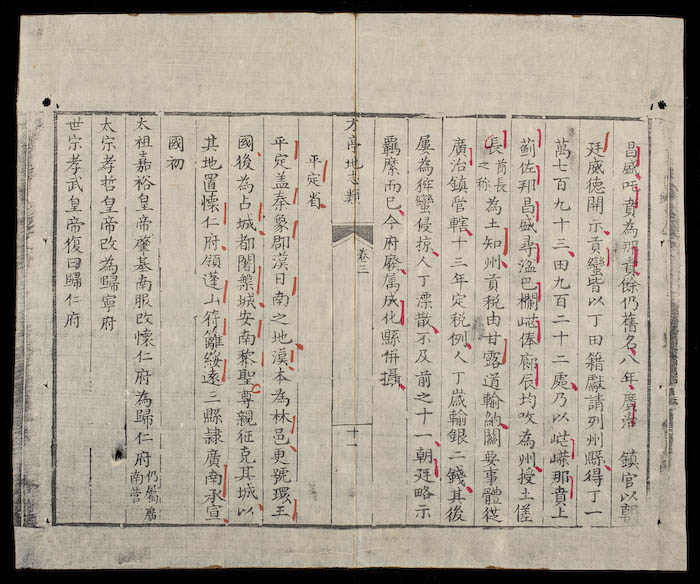 昌盛吒賁為那賁餘仍舊名八年廣治 鎮官以朝
廷威德開示貢蠻皆以丁田籍獻請列州縣得丁一
萬七百九十三田九百二十二處乃以嶸那賁上
薊佐那昌盛尋湓巴欄俸廊辰均改為州授土
長酋長之称為土知州貢税由甘露道輸納關要事體從
廣治鎮管轄十三年定税例人丁歲輸銀二錢其後
屢為猙蠻侵掠人丁漂散不及前之十一朝廷略示
羈縻而已今府廢属成化縣併攝
方亭地志類 卷三 十一
平定省
平定盖秦象郡漠日南之地漠本為林邑更號環王
國後為占城都闍槃城安南黎聖尊親征克其城以
其地置懷仁府領蓬山符籬綏遠三縣隷廣南承宣
國初
太祖嘉裕皇帝肇基南服改懷仁府為歸仁府仍屬廣南营
太宗孝哲皇帝改為歸寧府
世宗孝武皇帝復曰歸仁府